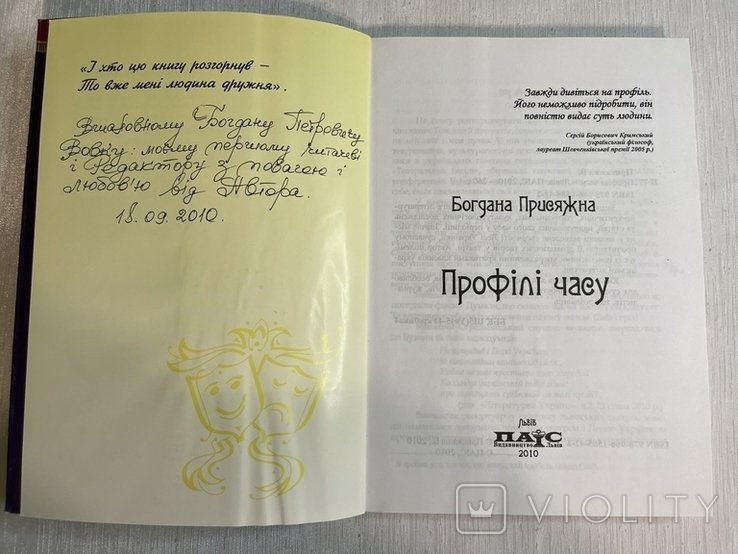 «І хто цю книгу розгорнув –
То вже мені людина дружня».
Вшановному Богдану Петровичу
Вовку: моєму першому читачеві
і редактору з повагою і
любов'ю від Автора.
18.09.2010.
Завжди дивіться на профіль.
Його неможливо підробити, він
повністю видає суть людини.
Сергій Борисович Кримський
(український філософ,
лауреат Шевченківської премії 2005 р.)
Богдана Присяжна
Профілі часу
Львів
ПАІС
Видавництво Львів
2010
VIOLITY